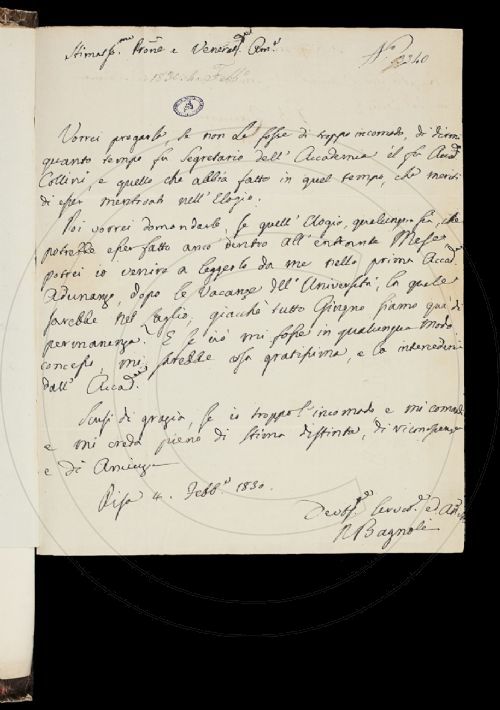 Stimatiss.mo Prone e Venerat.mo Am.o
N.o 2340
1830. 4. Febb.o
Vorrei pregarla, se non Le fosse di troppo incomodo, di dirmi
quanto tempo fu Segretario dell'Accademia il fu Accad.o
Collini, e quello che abbia fatto in quel tempo, che meriti
di esser mentovato nell'Elogio.
Poi vorrei domandarle, se quell'Elogio, qualunque sia, che
potrebbe esser fatto anco dentro all'entrante Mese
potrei io venire a leggerlo da me nella prima Accad.ca
Adunanza, dopo le Vacanze dell'Università, la quale
sarebbe nel Luglio, giacchè tutto Giugno siamo quà di
permanenza? E se ciò mi fosse in qualunque modo
concesso, mi sarebbe cosa gratissima, e la intercederei
dall'Accad.a
Scusi di grazia, se io troppo l'incomodo e mi comandi
e mi creda pieno di stima distinta, di riconoscenza
e di Amicizia
Pisa 4. Febb.o 1830.
Devotiss.o Servit.e ed Am.o
P. Bagnoli